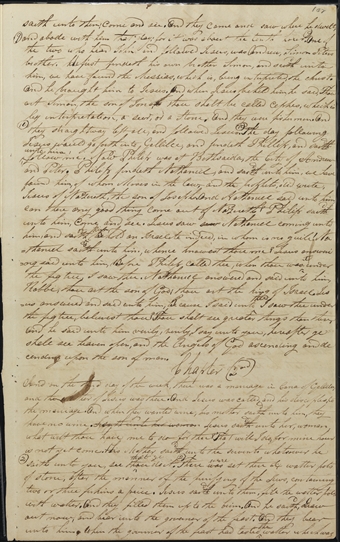 107
saith unto them, come and see, and they came and saw where he dwelt
and abode with him that day, for it was about the tenth hour. One
the two who hear John and followed Jesus, was Andrew, Simon Peters
brother. He first findeth his own brother Simon, and saith unto
him, we have found the Messias, which is, being interpreted, the christ.
And he brought him to Jesus. And when Jesus beheld him he said Thou
art Simon, the son of Jona, thou shalt be called Cephas, which is
by interpretation, a seer, or a stone. And they were fishermen. And
they straightway left all, and followed Jesus. The day following
Jesus would go forth into Gallilee, and findeth Phillip, and saith
unto him
follow me. Now Philip was of Bethsaida, the city of Andrew
and Peter. Philip findeth Nathaniel, and saith unto him, we have
found him, of whom Moses in the law, and the prophets, did write
Jesus of Nazareth, the son of Joseph. And Nathaniel said unto him
can there any good thing come out of Nazareth? Philip saith
unto him, Come and see. Jesus saw Nathaniel coming unto
him, and saith of him, Behold an Israelite indeed, in whom is no guile. Na
thaniel saith unto him, whence knowest thou me? Jesus answer
ing said unto him, before Philip called thee, when thou wast under
the fig tree, I saw thee. Nathaniel answered and said unto him
Rabbi, thou art the son of God; thou art the king of Israel. Jes
us answered and said unto him, because I said unto thee I saw thee under
the fig tree, believest thou? thou shalt see greater things than these,
And he said unto him, verily, verily, I say unto you, hereafter ye
shall see heaven open, and the Angels of God ascending and de
cending upon the son of man.
Chapter 2nd
And on the third day of the week, there was a marriage in Cana of Gallilee,
and the mother of Jesus was there. And Jesus was called, and his disciples to
the marriage. And when they wanted wine, his mother saith unto him, they
have no wine. Jesus saith unto her, woman,
what wilt thou have me to do for thee? that will I do; for mine hour
is not yet come. His mother saith unto the servants whatsoever he
saith unto you, see that ye do it. There was set there six water pots
of stone, after the manner of the purifying of the Jews, containing
two or three firkins a piece. Jesus saith unto them, fill the water pots
with water. And they filled them up to the brim. And he saith, draw
out now, and bear unto the governor of the feast. And they bare
unto him. When the governor of the feast had tasted